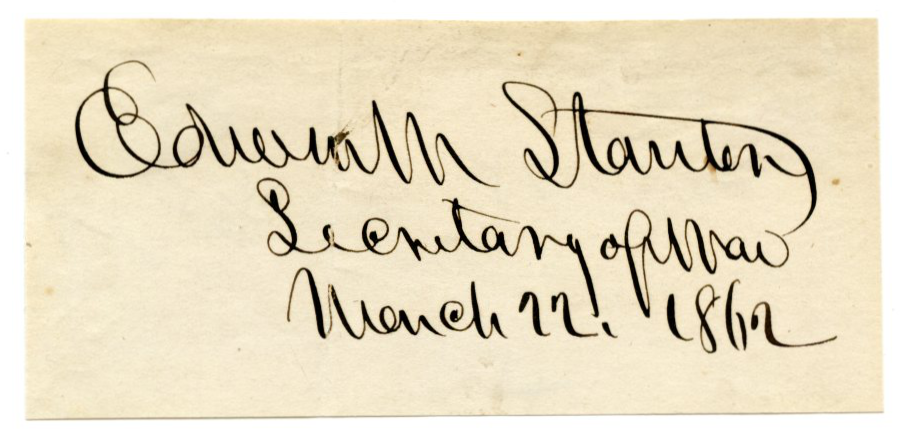 Edwin M Stanton
Secretary of War
March 22. 1862